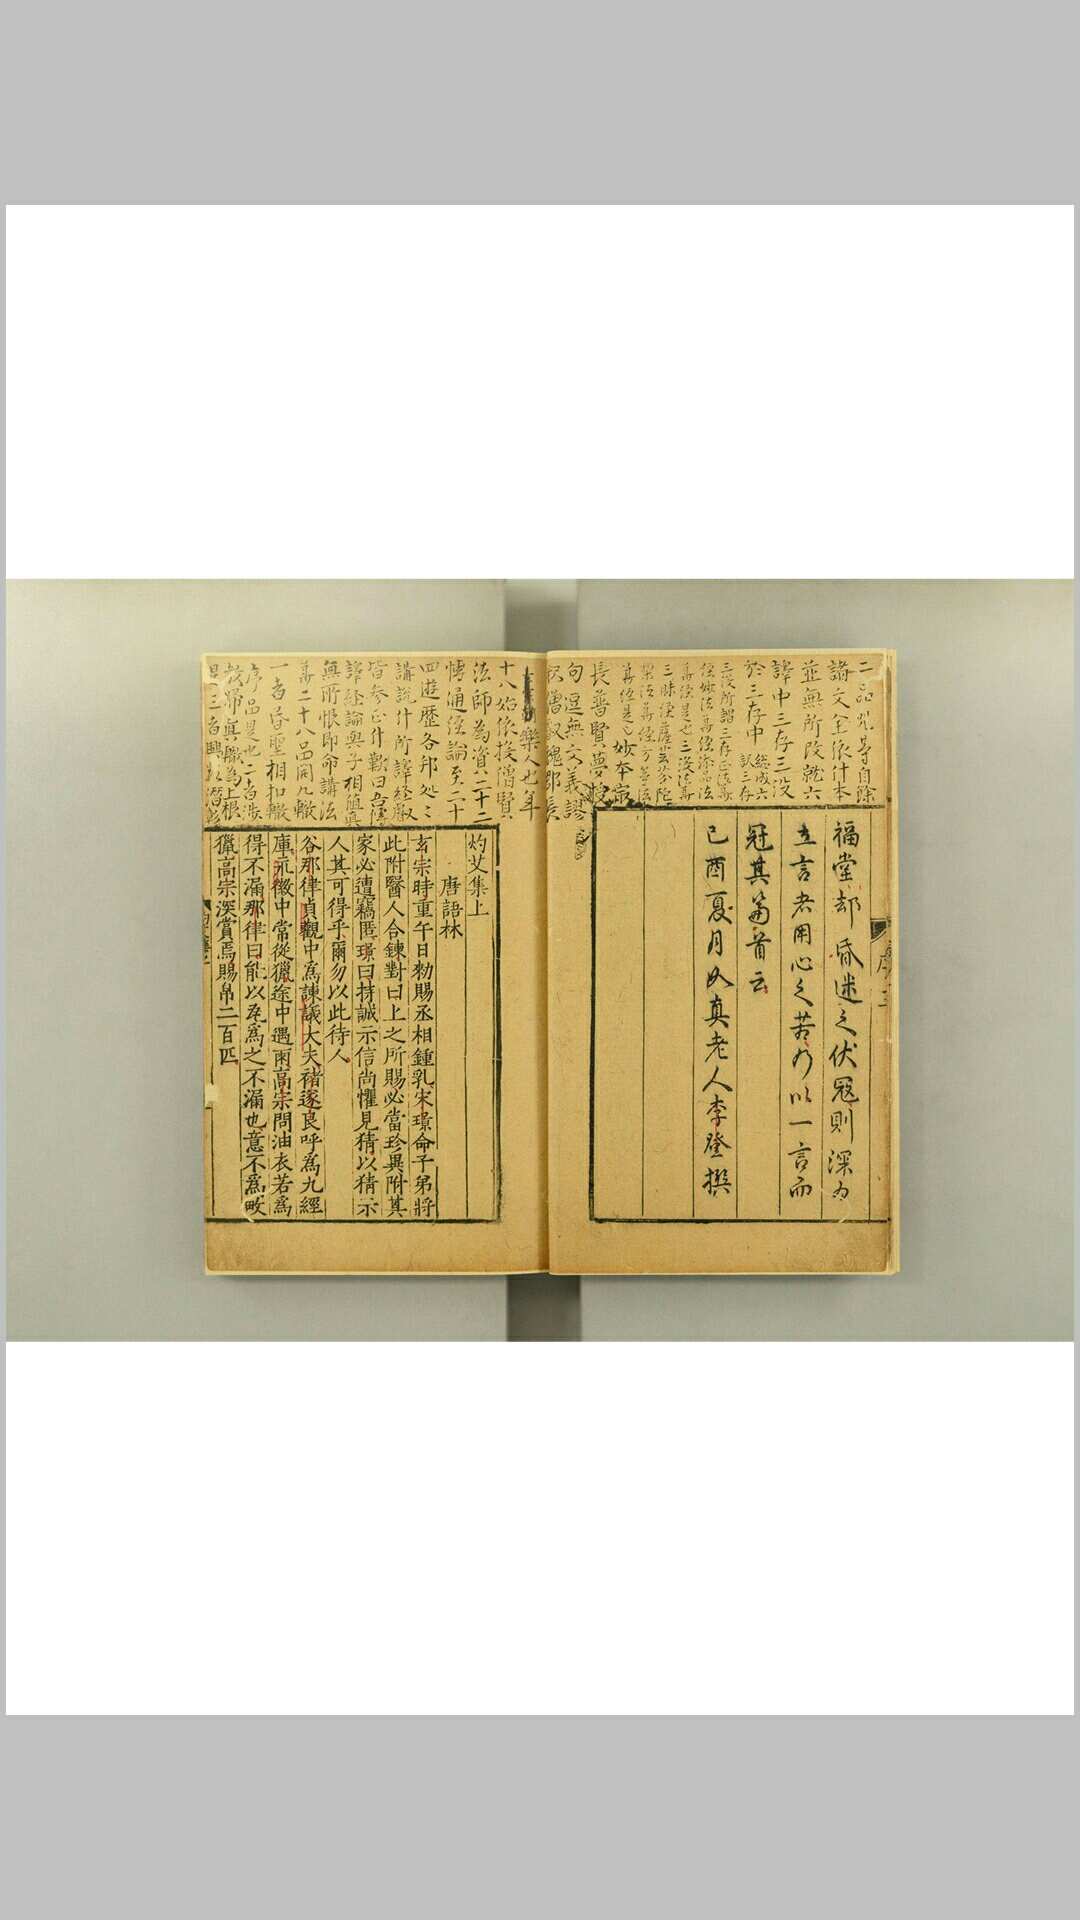 二品咒等自餘
諸文全依什本
並無所改就六
譯中三存三没
於三存中
福堂却昏迷之伏寇則深为
立言者用心之苦乃以一言而
冠其篇首云
己酉夏月如真老人李登撰
序三
長普賢夢
句逗無文義謬
樂人也年
十八始依投僧賢
法師為資二十二
博通經論至二十
四遊歷各邦処々
講說什所譯經
皆參正什歎曰吾
譯經論與子相值真
無所恨即命講法
華二十八品開九轍
一者昏聖相扣轍
序品是也二者涉
教歸真轍為上根
灼艾集上
唐語林
玄宗時重午日勑賜丞相鍾乳宋璟命子弟將
此附醫人合鍊對曰上之所賜必當珍異附其
家必遭竊匿璟曰持誠示信尚懼見猜以猜示
人其可得乎爾勿以此待人
谷那律貞觀中為諫議大夫褚遂良呼為九經
庫永徽中常從獵途中遇雨高宗問油衣若為
得不漏那律曰能以瓦為之不漏也意不為畋
獵高宗深賞焉賜帛二百匹